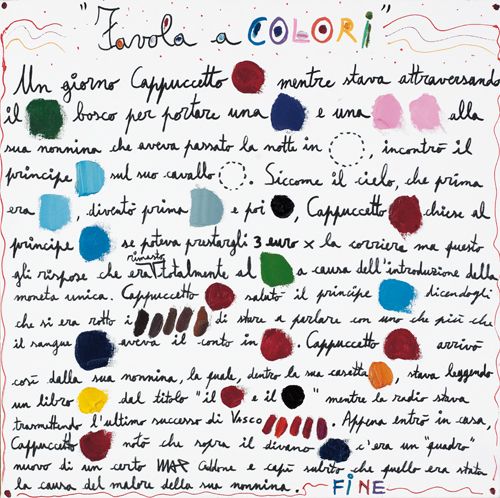 "Favola a COLORI"
Un giorno Cappuccetto mentre stava attraversando
il bosco per portare una e una alla
sua nonnina che aveva passato la notti in , incontrò il
principe sul suo cavallo . Siccome il cielo, che prima
era , diventò prima e poi , Cappuccetto chiese al
principe se poteva prestargli 3 euro x la corriera ma questo
gli rispose che era rimasto totalmente al a causa dell'introduzione della
moneta unica. Cappuccetto salutò il principe dicendogli
che si era rotto i di stare a parlare con uno che più che
il sangue aveva il conto in . Cappuccetto arrivò
così dalla sua nonnina, la quale, dentro la sua casetta , stava leggendo
un libro dal titolo "il e il " mentre la radio stava
trasmettendo l'ultimo successo di Vasco . Appena entrò in casa,
Cappuccetto notò che sopra il divano c'era un "quadro"
nuovo di un certo e capì subito che quello era stata
la causa del malore della sua nonnina.
FINE